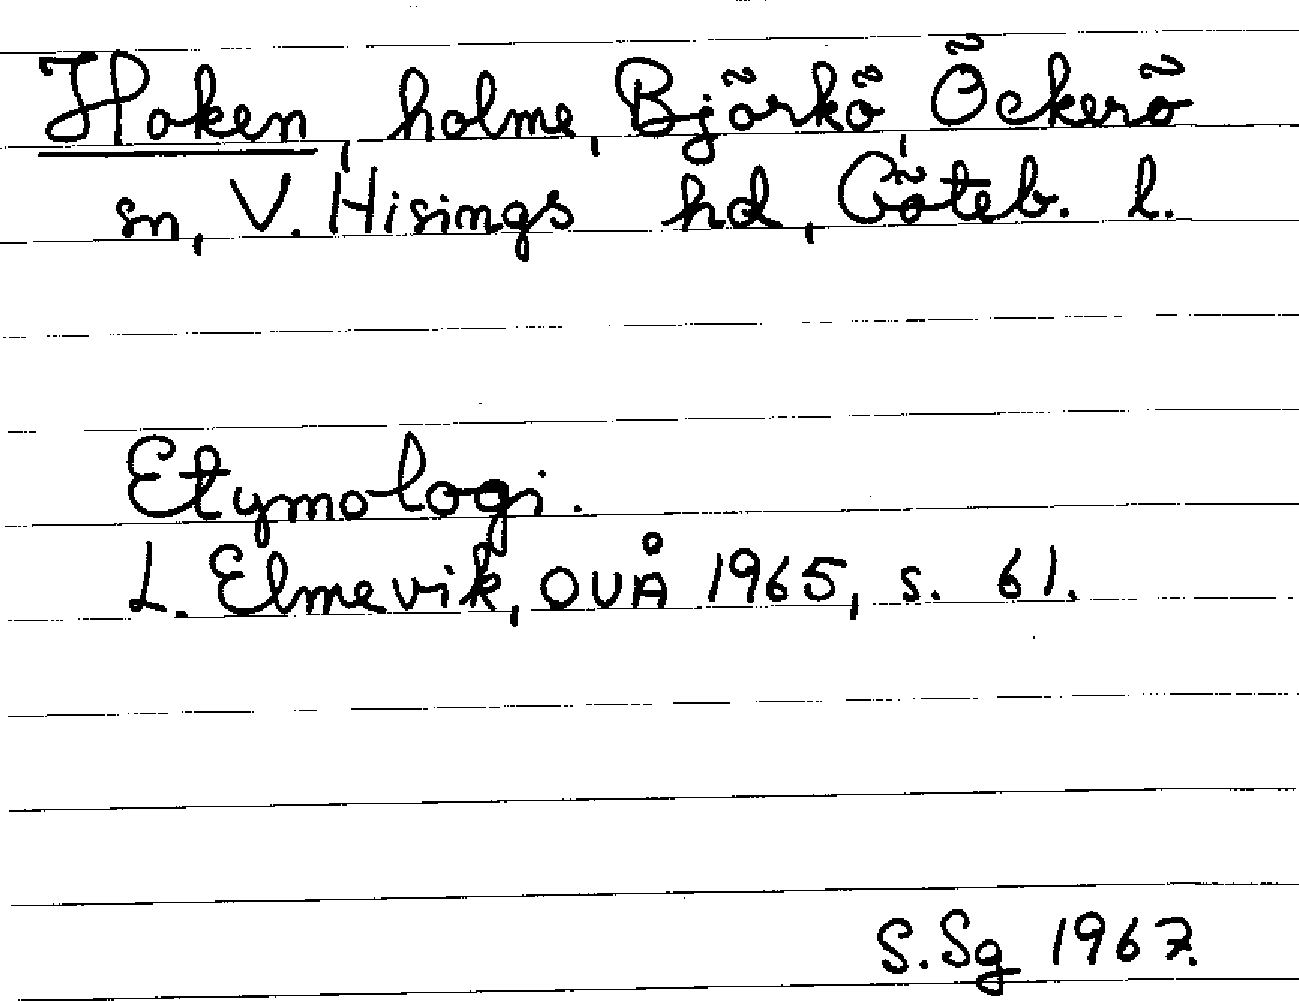 Haken, holme, Björkö, Öckerö
sn, V. Hisings hd, Göteb. l.
Etymologi.
L. Elmevik, OUÅ 1965, s. 61.
S.Sg 1967.